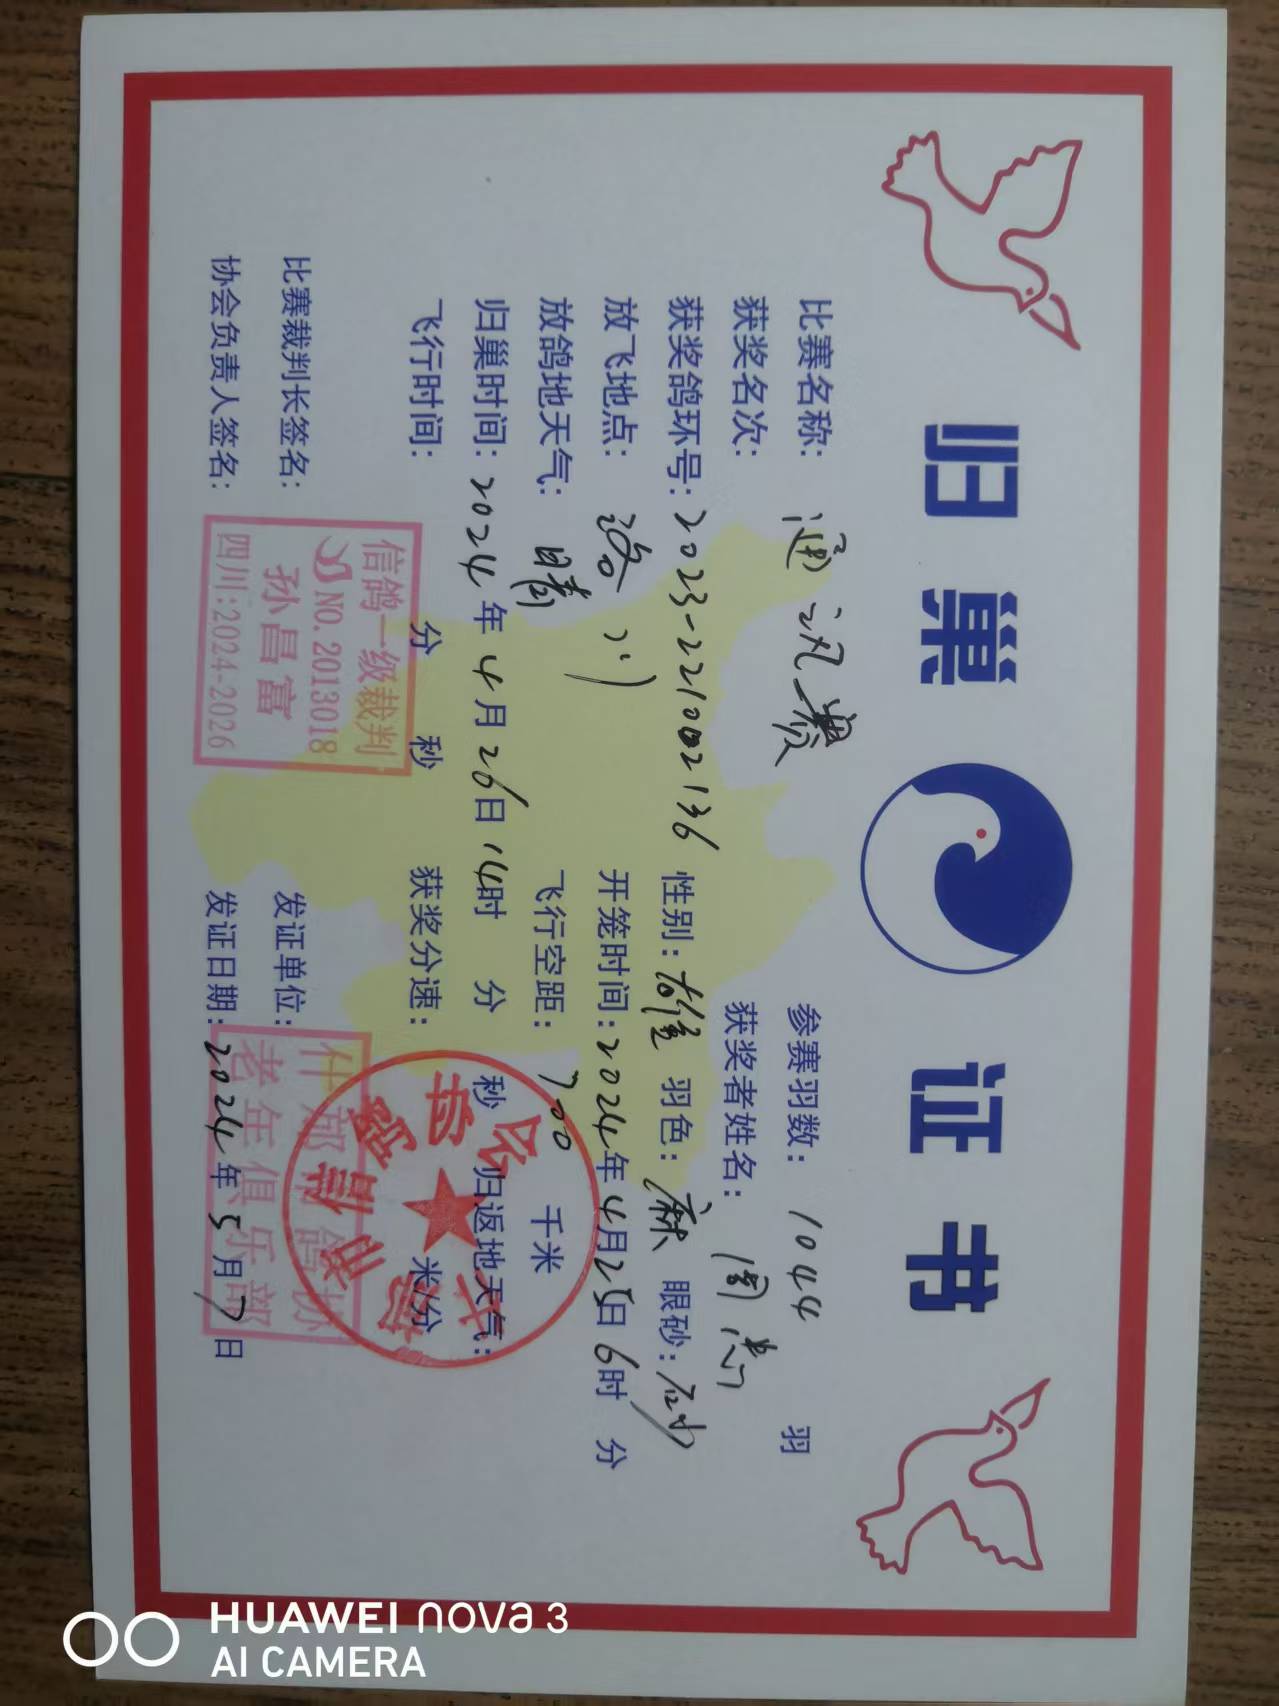 归巢证书
比赛名称: 通讯赛 参赛羽数: 1044 羽
获奖名次: 获奖者姓名: 周岗
获奖鸽环号: 2023-2210002136 性别: 雄 羽色: 麻 眼砂: 砂
放飞地点: 洛川 开笼时间: 2024年4月25日6时 分
放鸽地天气: 晴 飞行空距: 700 千米
归巢时间: 2024年4月26日14时 分 秒 归返地天气:
飞行时间: 分 秒 获奖分速: 米/分
比赛裁判长签名: 发证单位:
协会负责人签名: 发证日期: 2024年5月7日
信鸽一级裁判
NO.2013018
孙昌富
四川:2024-2026
什邡市信鸽协
老年俱乐部
HUAWEI nova 3
AI CAMERA